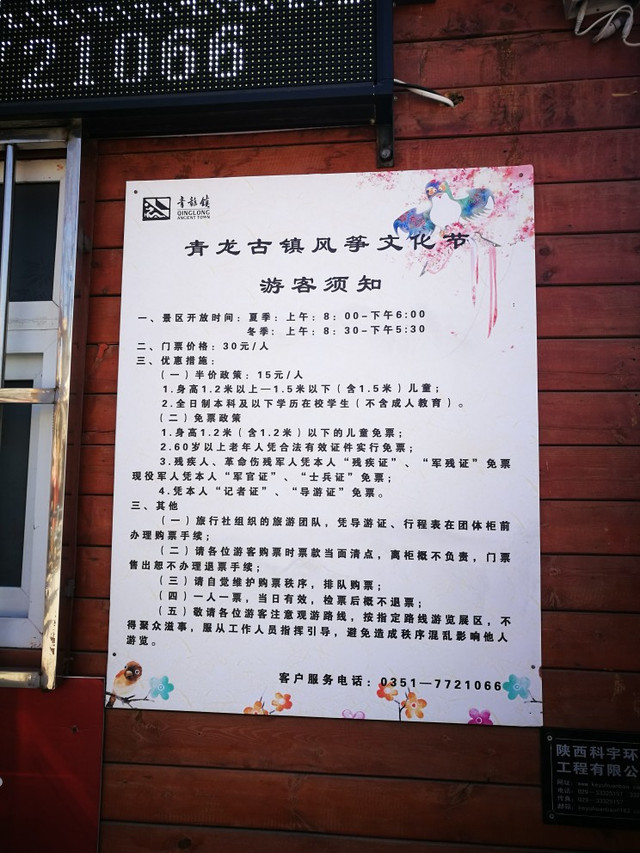 21066
青龙镇
QINGLONG
ANCIENT TOWN
青龙古镇风筝文化节
游客须知
一、景区开放时间：夏季：上午：8：00-下午6:00
冬季：上午：8：30-下午5:30
二、门票价格：30元/人
三、优惠措施：
（一）半价政策：15元/人
1.身高1.2米以上—1.5米以下（含1.5米）儿童；
2.全日制本科及以下学历在校学生（不含成人教育）。
（二）免票政策
1.身高1.2米（含1.2米）以下的儿童免票；
2.60岁以上老年人凭合法有效证件实行免票；
3.残疾人、革命伤残军人凭本人“残疾证”、“军残证”免票
现役军人凭本人“军官证”、“士兵证”免票；
4.凭本人“记者证”、“导游证”免票。
三、其他
（一）旅行社组织的旅游团队，凭导游证、行程表在团体柜前
办理购票手续；
（二）请各位游客购票时票款当面清点，离柜概不负责，门票
售出恕不办理退票手续；
（三）请自觉维护购票秩序，排队购票；
（四）一人一票，当日有效，检票后概不退票；
（五）敬请各位游客注意观游路线，按指定路线游览展区，不
得聚众滋事，服从工作人员指挥引导，避免造成秩序混乱影响他人
游览。
客户服务电话：0351—7721066
陕西科宇环
工程有限公